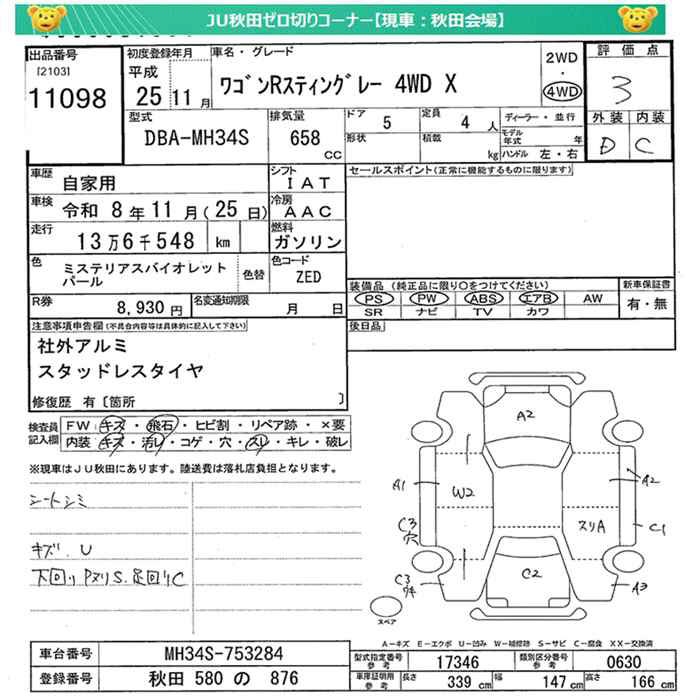 JU秋田ゼロ切りコーナー【現車：秋田会場】
出品番号
[2103]
11098
初度登録年月
平成
25年11月
車名・グレード
ワゴンRスティングレー 4WD X
2WD
・
4WD
評価点
3
外装 内装
D C
型式
DBA-MH34S
排気量
658
CC
ドア
5
定員
4 人
形状
積載
kg
ディーラー・並行
モデル年式 年
ハンドル 左・右
車歴
自家用
シフト
IAT
車検
令和 8年11月(25日)
冷房
AAC
走行
13万6千548 km
燃料
ガソリン
色
ミステリアスバイオレット
パール
色替
色コード
ZED
R券
8,930円
名変通知期限
月 日
セールスポイント(正常に機能するものに限ります)
装備品 (純正品に限り○をつけてください)
PS PW ABS エアB AW
SR ナビ TV カワ
新車保証書
有・無
後日品
注意事項申告欄(不具合内容等は具体的に記入して下さい)
社外アルミ
スタッドレスタイヤ
修復歴 有〔箇所 〕
検査員
記入欄
FW・キズ・飛石・ヒビ割・リペア跡・×要
内装・キズ・汚レ・コゲ・穴・スリ・キレ・破レ
※現車はJU秋田にあります。陸送費は落札店負担となります。
シートシミ
キズ.U
下回りPヌリS.足回りC
A2
A1
W2
A2
C3
穴
スリA
C1
C3
C2
A3
スペア
A－キズ E－エクボ U－凹み W－補修跡 S－サビ C－腐食 XX－交換済
車台番号
MH34S-753284
登録番号
秋田 580 の 876
型式指定番号
参考
17346
類別区分番号
参考
0630
車庫証明用
参考
長さ 339 cm
幅 147 cm
高さ 166 cm